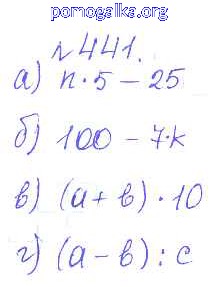 pomogalka.org
№441.
а) n·5 – 25
б) 100 – 7·k
в) (a + b) · 10
г) (a – b) : c